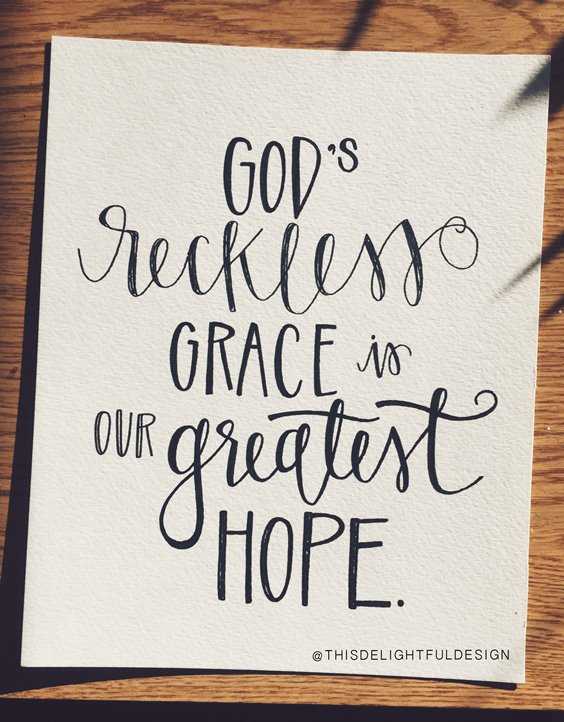 GOD'S
reckless
GRACE is
OUR greatest
HOPE.
@THISDELIGHTFULDESIGN